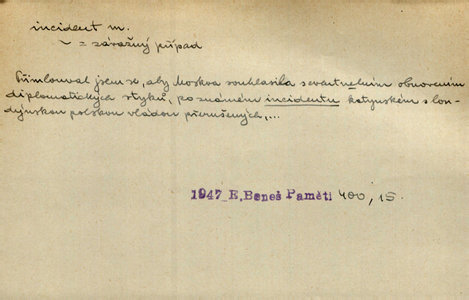 incident m.
= závažný případ
Přimlouval jsem se, aby Moskva souhlasila s eventuelním obnovením
diplomatických styků, po známém incidentu katynském s lon-
dýnskou polskou vládou přerušených,...
1947 E. Beneš Paměti 400, 15.